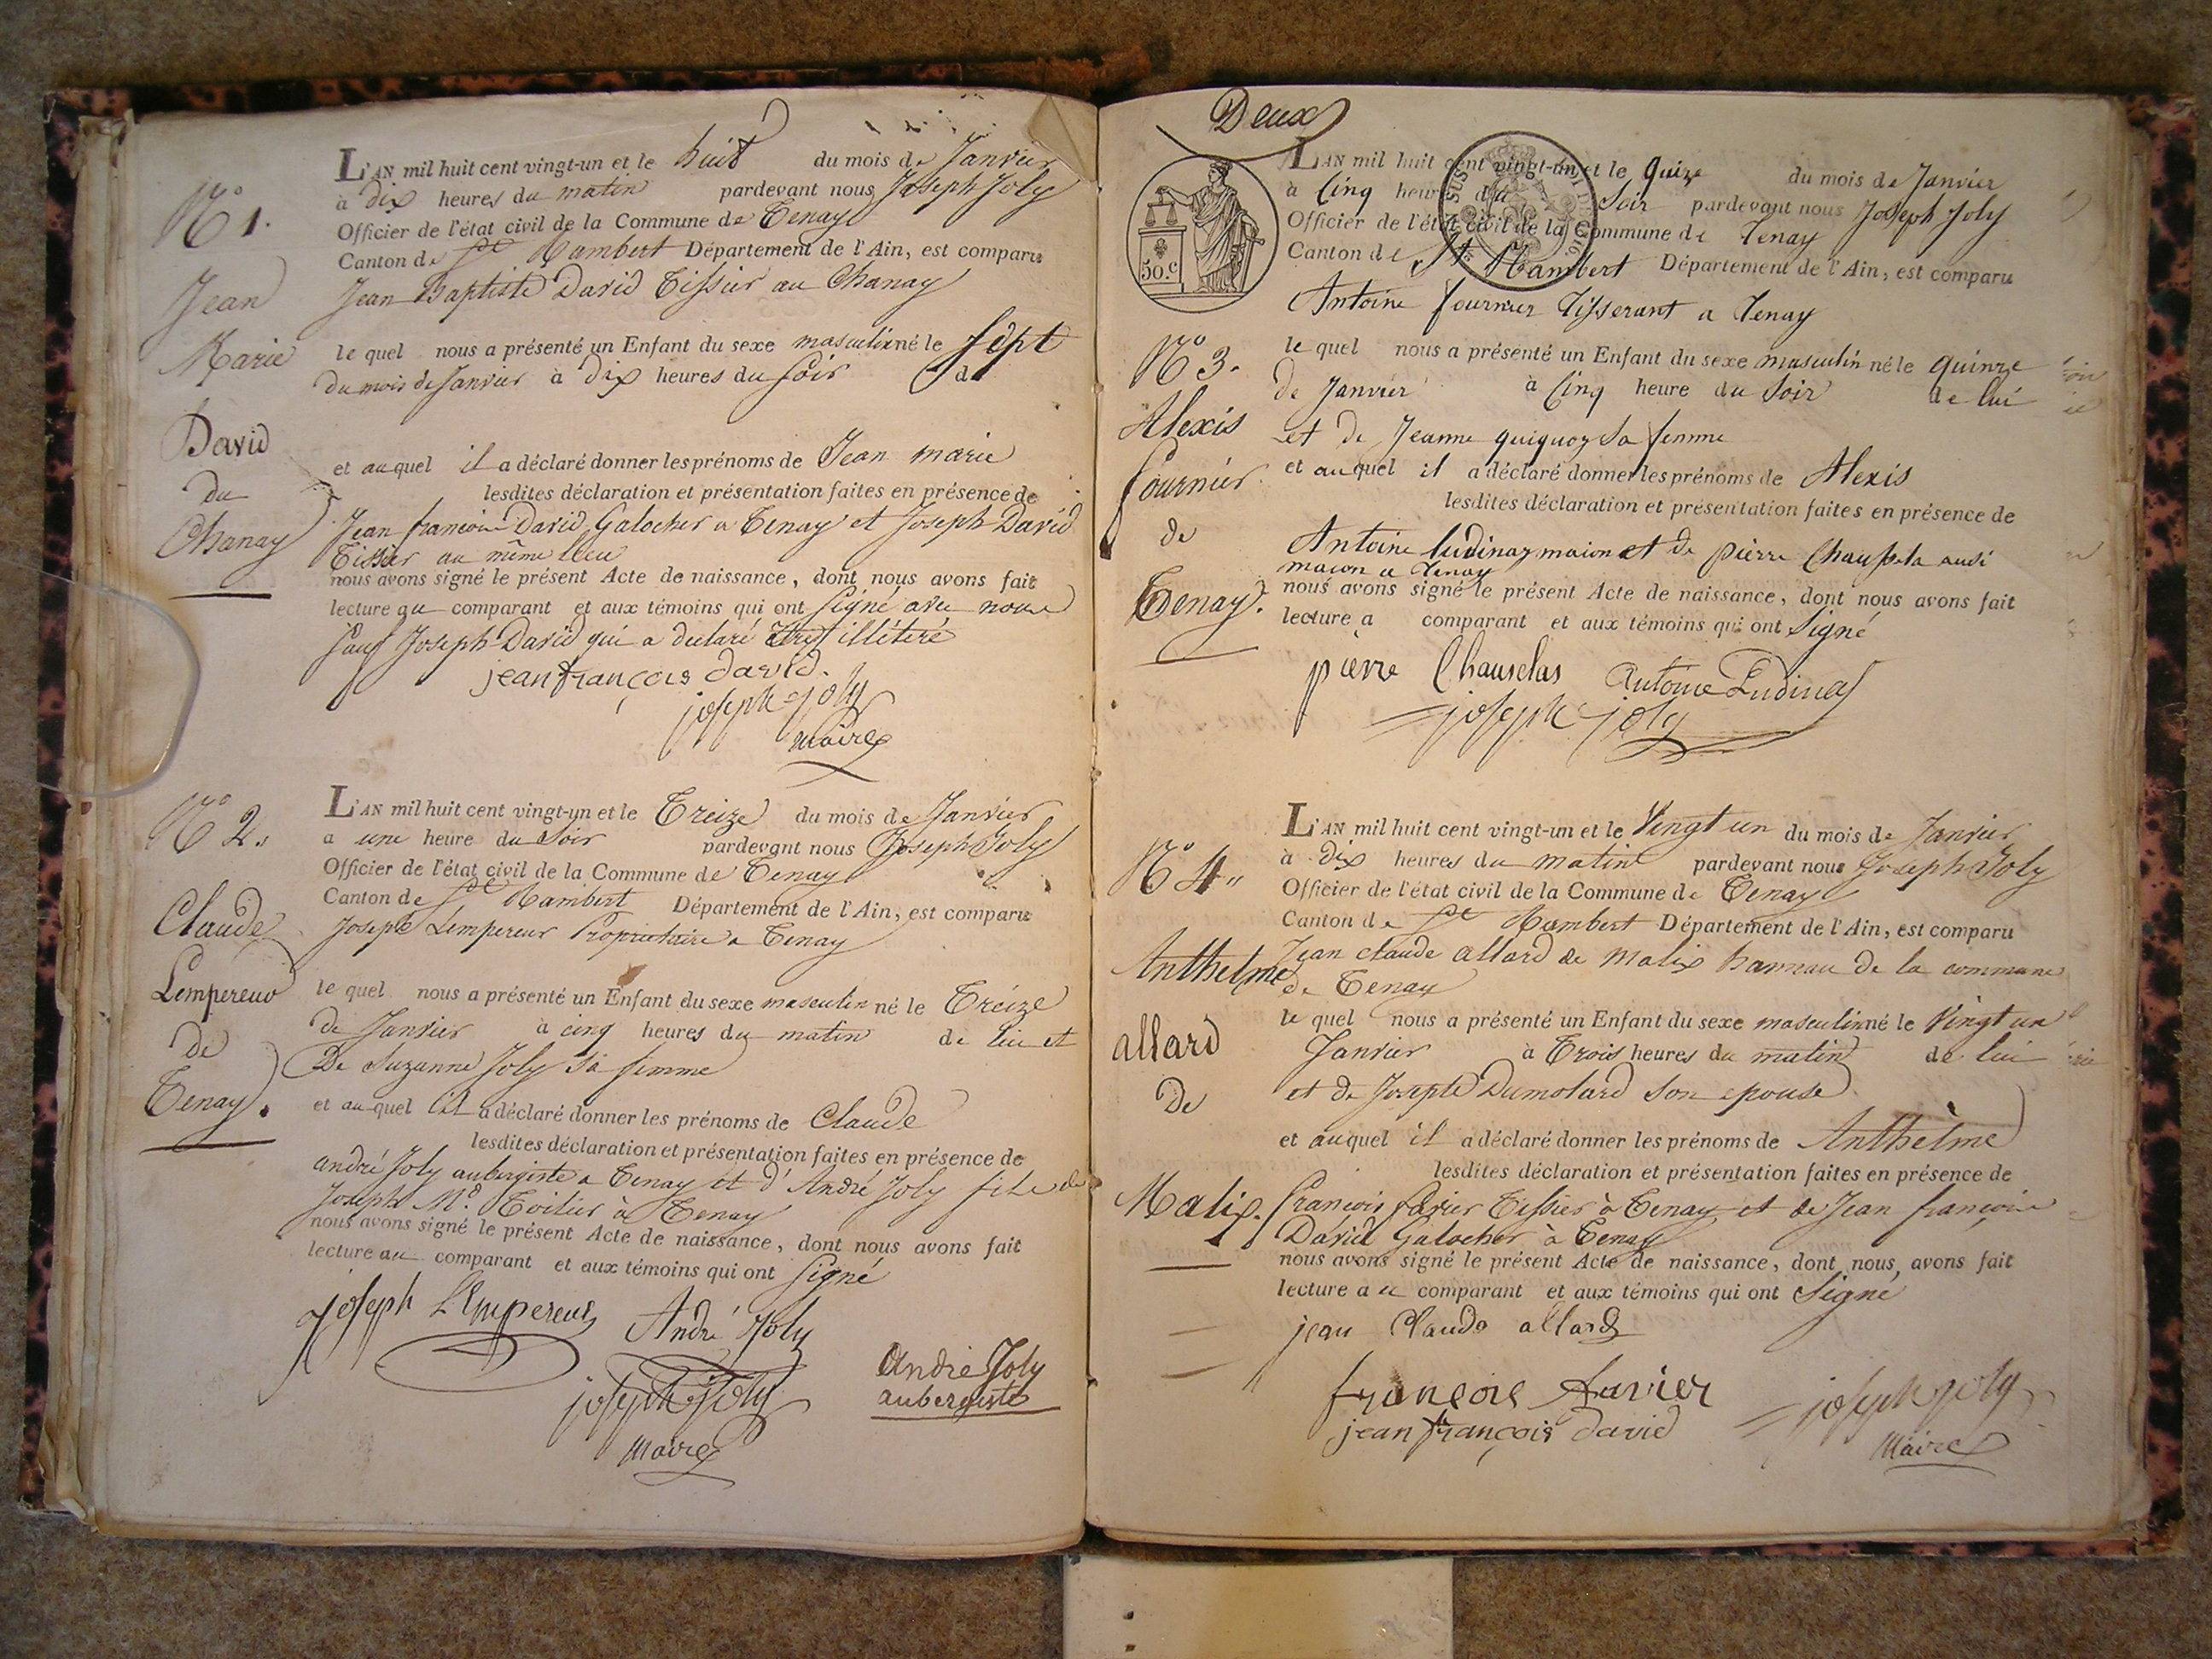 N.º 1.
Jean
Marie
David
du
Chanay
L'AN mil huit cent vingt-un et le huit du mois de Janvier
à dix heures du matin pardevant nous Joseph Joly
Officier de l'état civil de la Commune de Tenay
Canton de St Rambert Département de l'Ain, est comparu
Jean Baptiste David Tissier au Chanay
le quel nous a présenté un Enfant du sexe masculin né le sept
du mois de Janvier à dix heures du soir de
et au quel il a déclaré donner les prénoms de Jean marie
lesdites déclaration et présentation faites en présence de
Jean françois David Galocher a Tenay et Joseph David
Tissier au même lieu
nous avons signé le présent Acte de naissance, dont nous avons fait
lecture au comparant et aux témoins qui ont signé avec nous
sauf Joseph David qui a declaré être illétéré
jean françois david.
joseph joly
maire
N.º 2.
Claude
Lempereur
de
Tenay.
L'AN mil huit cent vingt-un et le Treize du mois de Janvier
a une heure du Soir pardevant nous Joseph Joly
Officier de l'état civil de la Commune de Tenay
Canton de St Rambert Département de l'Ain, est comparu
Joseph Lempereur Propriétaire a Tenay
le quel nous a présenté un Enfant du sexe masculin né le Treize
de Janvier à cinq heures du matin de lui et
De Suzanne Joly sa femme
et au quel il a déclaré donner les prénoms de Claude
lesdites déclaration et présentation faites en présence de
andré Joly aubergiste a Tenay et d'André Joly fils de
Joseph Md. Toilier à Tenay
nous avons signé le présent Acte de naissance, dont nous avons fait
lecture au comparant et aux témoins qui ont signé
joseph LEmpereur André Joly
André Joly
aubergiste
joseph Joly
maire
Deux
50.c
L'AN mil huit cent vingt-un et le quize du mois de Janvier
à Cinq heures du Soir pardevant nous Joseph Joly
Officier de l'état civil de la Commune de Tenay
Canton de St Rambert Département de l'Ain, est comparu
Antoine fournier Tisserant a Tenay
N.º 3.
Alexis
fournier
de
Tenay.
le quel nous a présenté un Enfant du sexe masculin né le quinze
de Janvier à Cinq heure du Soir de lui
et de Jeanne quiquoz Sa femme
et au quel il a déclaré donner les prénoms de Alexis
lesdites déclaration et présentation faites en présence de
Antoine ludinaz maion et de pierre Chausela ausi
macon a Tenay
nous avons signé le présent Acte de naissance, dont nous avons fait
lecture a comparant et aux témoins qui ont Signé
pierre Chauselas Antoine Ludinas
joseph joly
N.º 4
Anthelme
allard
De
Malix.
L'AN mil huit cent vingt-un et le Vingt un du mois de Janvier
à dix heures du matin pardevant nous Joseph Joly
Officier de l'état civil de la Commune de Tenay
Canton de St Rambert Département de l'Ain, est comparu
Jean claude allard de Malix hanneau de la commune
de Tenay
le quel nous a présenté un Enfant du sexe masculin né le Vingt un
Janvier à Trois heures du matin de lui
et de Josephte Dumolard son epouse
et auquel il a déclaré donner les prénoms de Anthèlme
lesdites déclaration et présentation faites en présence de
françois favier Tissier à Tenay et de Jean françois
David Galocher à Tenay
nous avons signé le présent Acte de naissance, dont nous avons fait
lecture au comparant et aux témoins qui ont Signé
jean Claude allard
françois favier
jean françois david
joseph joly
Maire